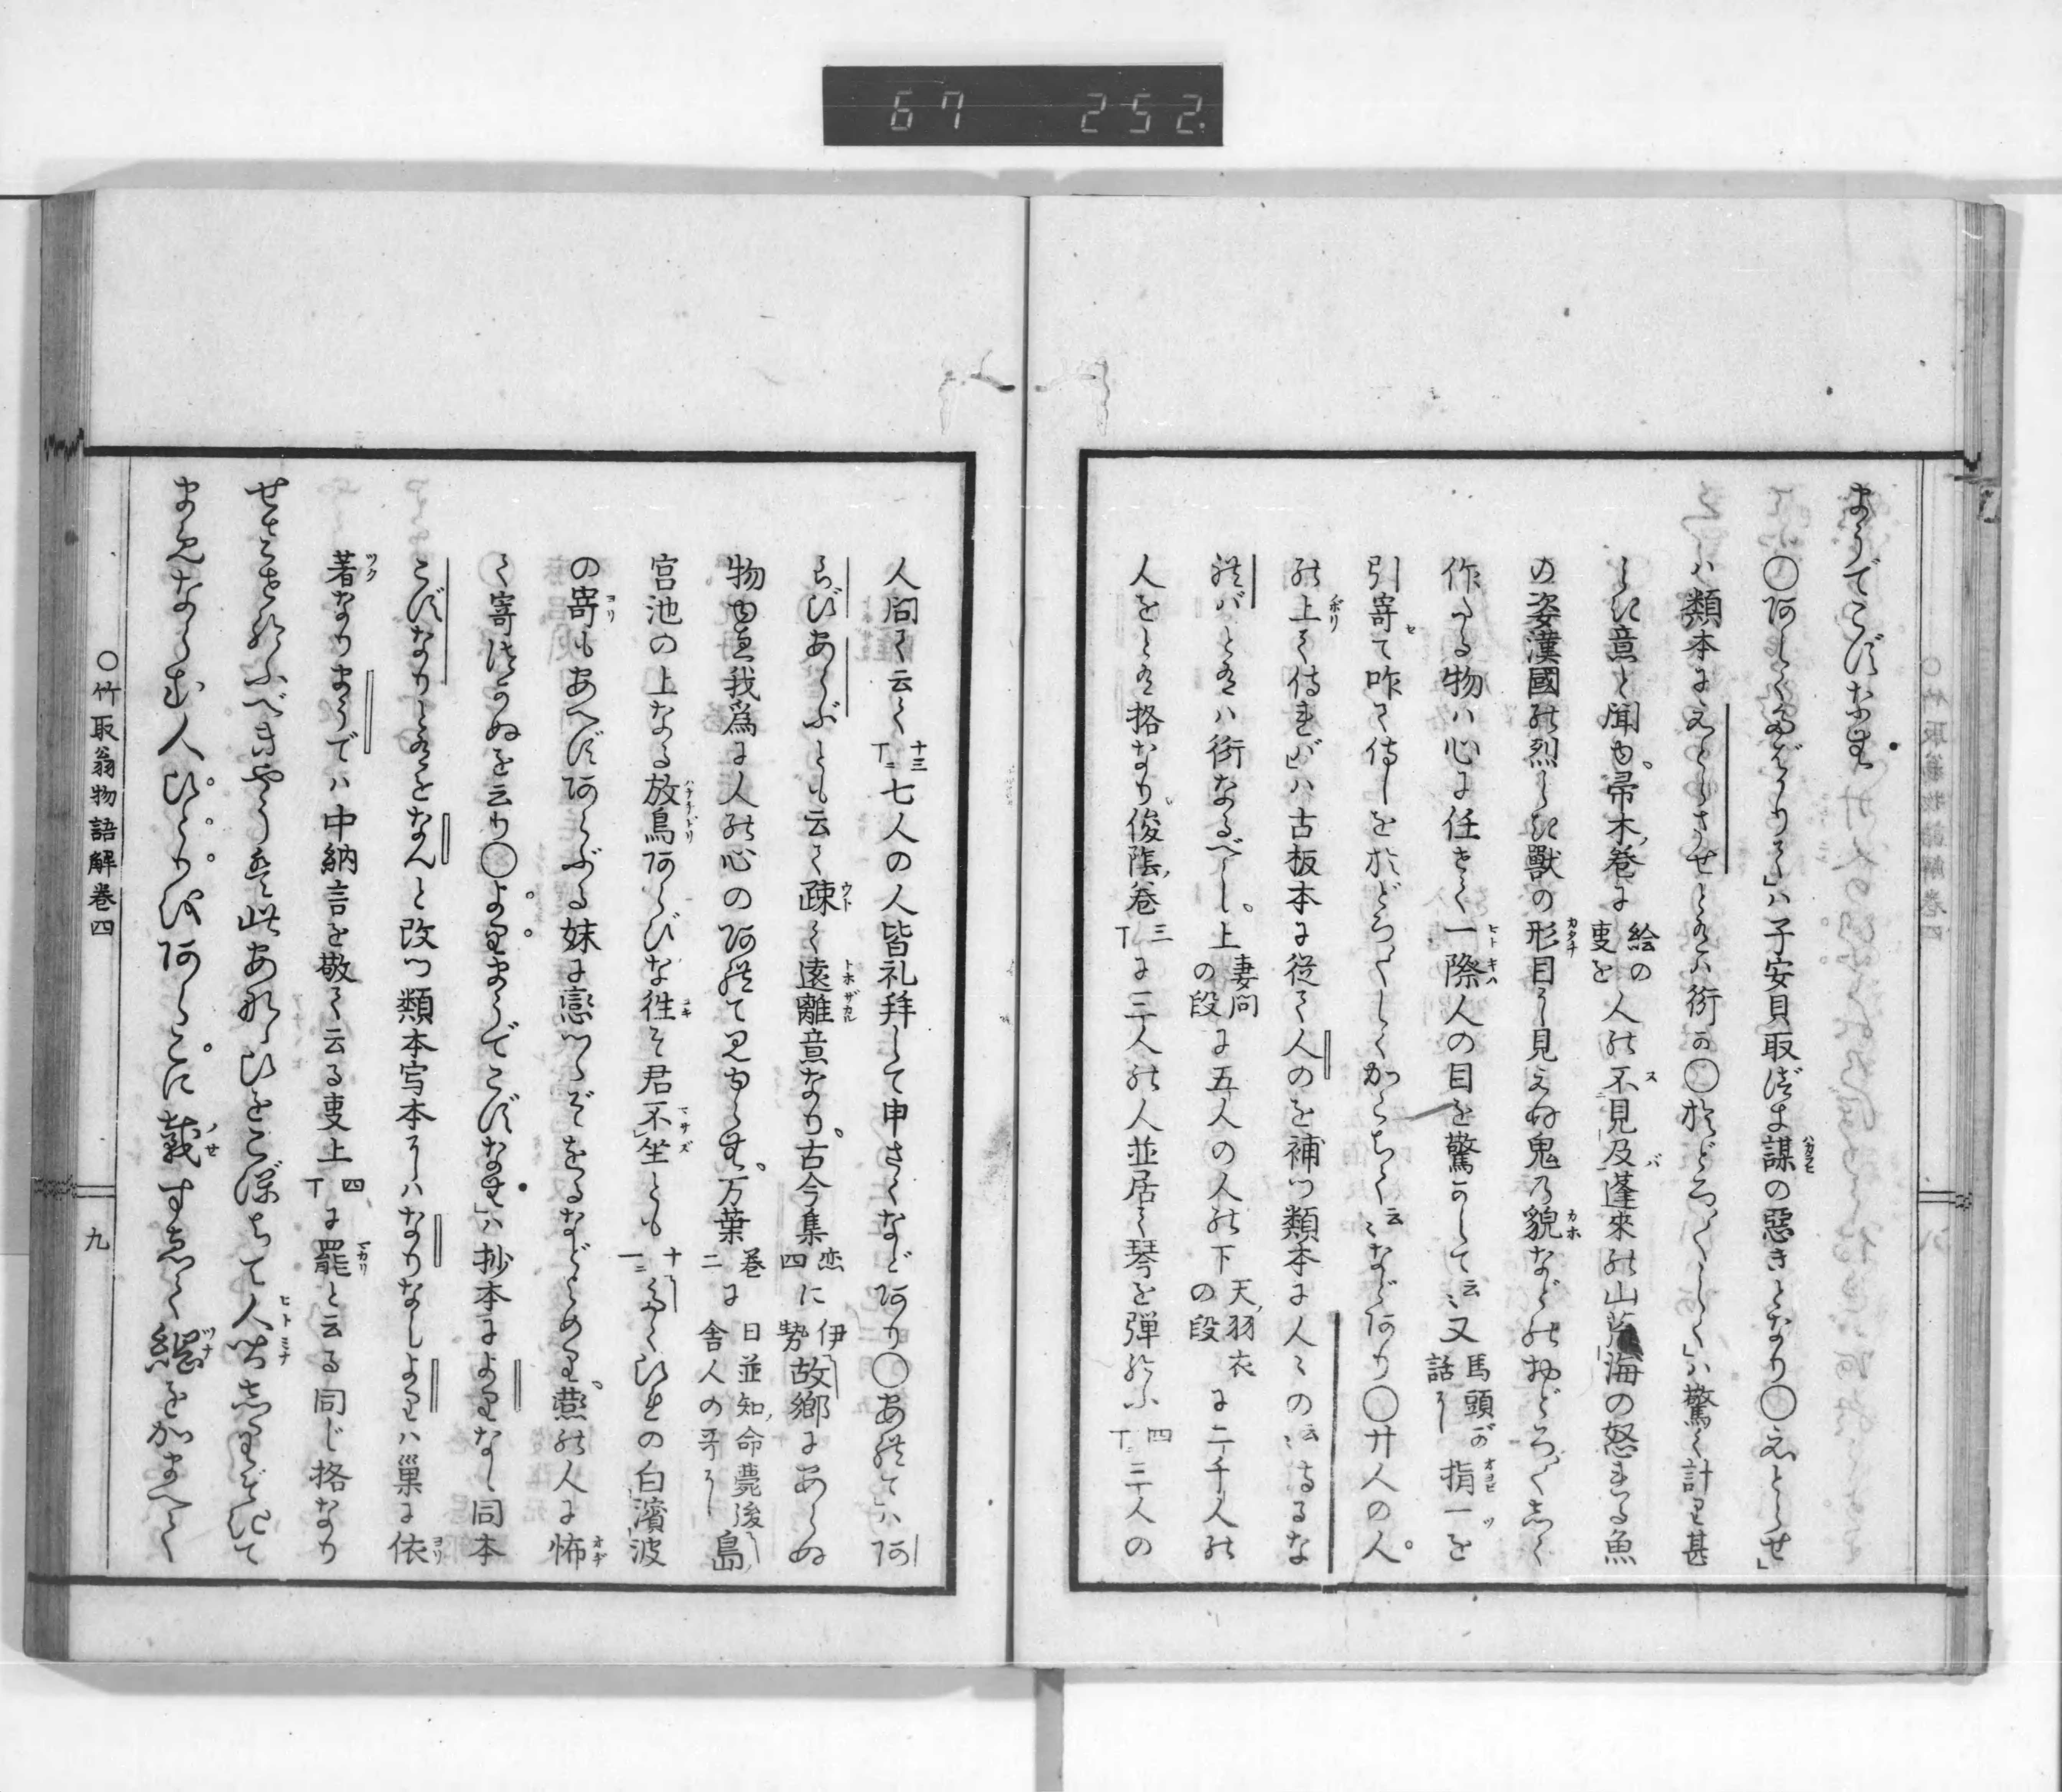 67 252.
まうでこずなむ
○あしくたばかりて」ハ子安貝取づき謀の惡きとなり○えとらせ」
ハ類本にえとらさせとあるハ衍か○おどろ〳〵しく」ハ驚く計り甚
しき意と聞ゆ、帚木ノ巻に絵の叓を人の不見及蓬來の山荒海の怒れる魚
の姿漢國の烈しき獸の形目に見えぬ鬼の貌などのおどろ〳〵しく
作たる物ハ心に任せて一際人の目を驚かして云〻又馬頭が話に指一を
引寄て咋て侍しをおどろ〳〵しくかこちて云〻などあり○廿人の人
の上て侍れバ」ハ古板本に従て人のを補つ類本に人〻の云〻あるな
れバとあるハ衍なるべし、上妻问の段に五人の人の下天ノ羽衣の段に二千人の
人をとある格なり俊蔭ノ巻三丁に三人の人並居て琴を弾給ふ四丁三人の
人问て云く十三丁七人の人皆礼拜して申さくなどあり○あれて」ハあ
らびあらぶとも云て疎く遠離意なり、古今集恋四に伊勢故郷にあらぬ
物ゆゑ我爲に人の心のあれて見ゆらむ、万葉巻二に日並知ノ命薨後舎人の哥に島
宮池の上なる放鳥あらびな徃そ君不坐とも十一たくひれの白濱波
の寄もあへずあらぶる妹に戀つゝぞをるなどよめり、燕の人に怖
て寄つかぬを云り○よりまうでこずなむ」ハ抄本によりなし同本
こずなりとあるをなんと改つ類本写本にハなりなしよりハ巣に依
著なりまうでハ中納言を敬て云る叓上四丁に罷と云る同じ格なり
せさせ給ふべきやうハ此あなゝひをこぼちて人皆しりぞきて
まめならむ人ひとりをあらこに載すゑて綱をかまへて
○竹取翁物語解巻四
九